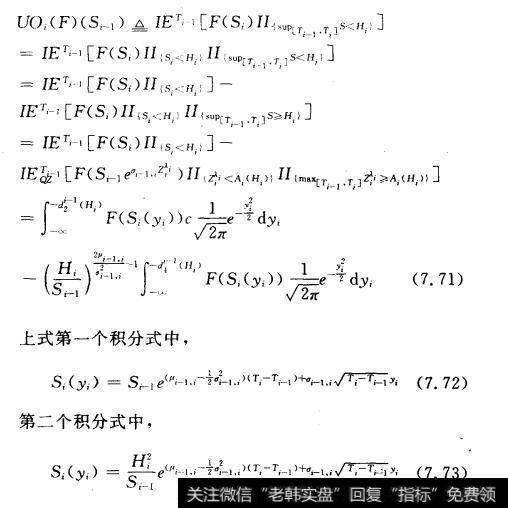 UO_i(F)(S_{i-1}) ≜ IE^{T_{i-1}}[F(S_i)II_{{sup_{[T_{i-1},T_i]}S<H_i}}]
= IE^{T_{i-1}}[F(S_i)II_{{S_i<H_i}}II_{{sup_{[T_{i-1},T_i]}S<H_i}}]
= IE^{T_{i-1}}[F(S_i)II_{{S_i<H_i}}] −
IE^{T_{i-1}}[F(S_i)II_{{S_i<H_i}}II_{{sup_{[T_{i-1},T_i]}S≥H_i}}]
= IE^{T_{i-1}}[F(S_i)II_{{S_i<H_i}}] −
IE_{QZ}^{T_{i-1}}[F(S_{i-1}e^{σ_{i-1,i}Z_i^{λ_i}})II_{{Z_i^{λ_i}<A_i(H_i)}}II_{{max_{[T_{i-1},T_i]}Z_i^{λ_i}≥A_i(H_i)}}]
= ∫_{-∞}^{-d_2^{i-1}(H_i)} F(S_i(y_i))c \frac{1}{\sqrt{2π}}e^{-\frac{y_i^2}{2}}dy_i
− (\frac{H_i}{S_{i-1}})^{\frac{2μ_{i-1,i}}{σ_{i-1,i}^2}-1} ∫_{-∞}^{-d^{i-1}(H_i)} F(S_i(y_i)) \frac{1}{\sqrt{2π}}e^{-\frac{y_i^2}{2}}dy_i (7.71)
上式第一个积分式中，
S_i(y_i) = S_{i-1}e^{(μ_{i-1,i}-\frac{1}{2}σ_{i-1,i}^2)(T_i-T_{i-1})+σ_{i-1,i}\sqrt{T_i-T_{i-1}}y_i} (7.72)
第二个积分式中，
S_i(y_i) = \frac{H_i^2}{S_{i-1}}e^{(μ_{i-1,i}-\frac{1}{2}σ_{i-1,i}^2)(T_i-T_{i-1})+σ_{i-1,i}\sqrt{T_i-T_{i-1}}y_i} (7.73)
关注微信“老韩实盘”回复“指标”免费领